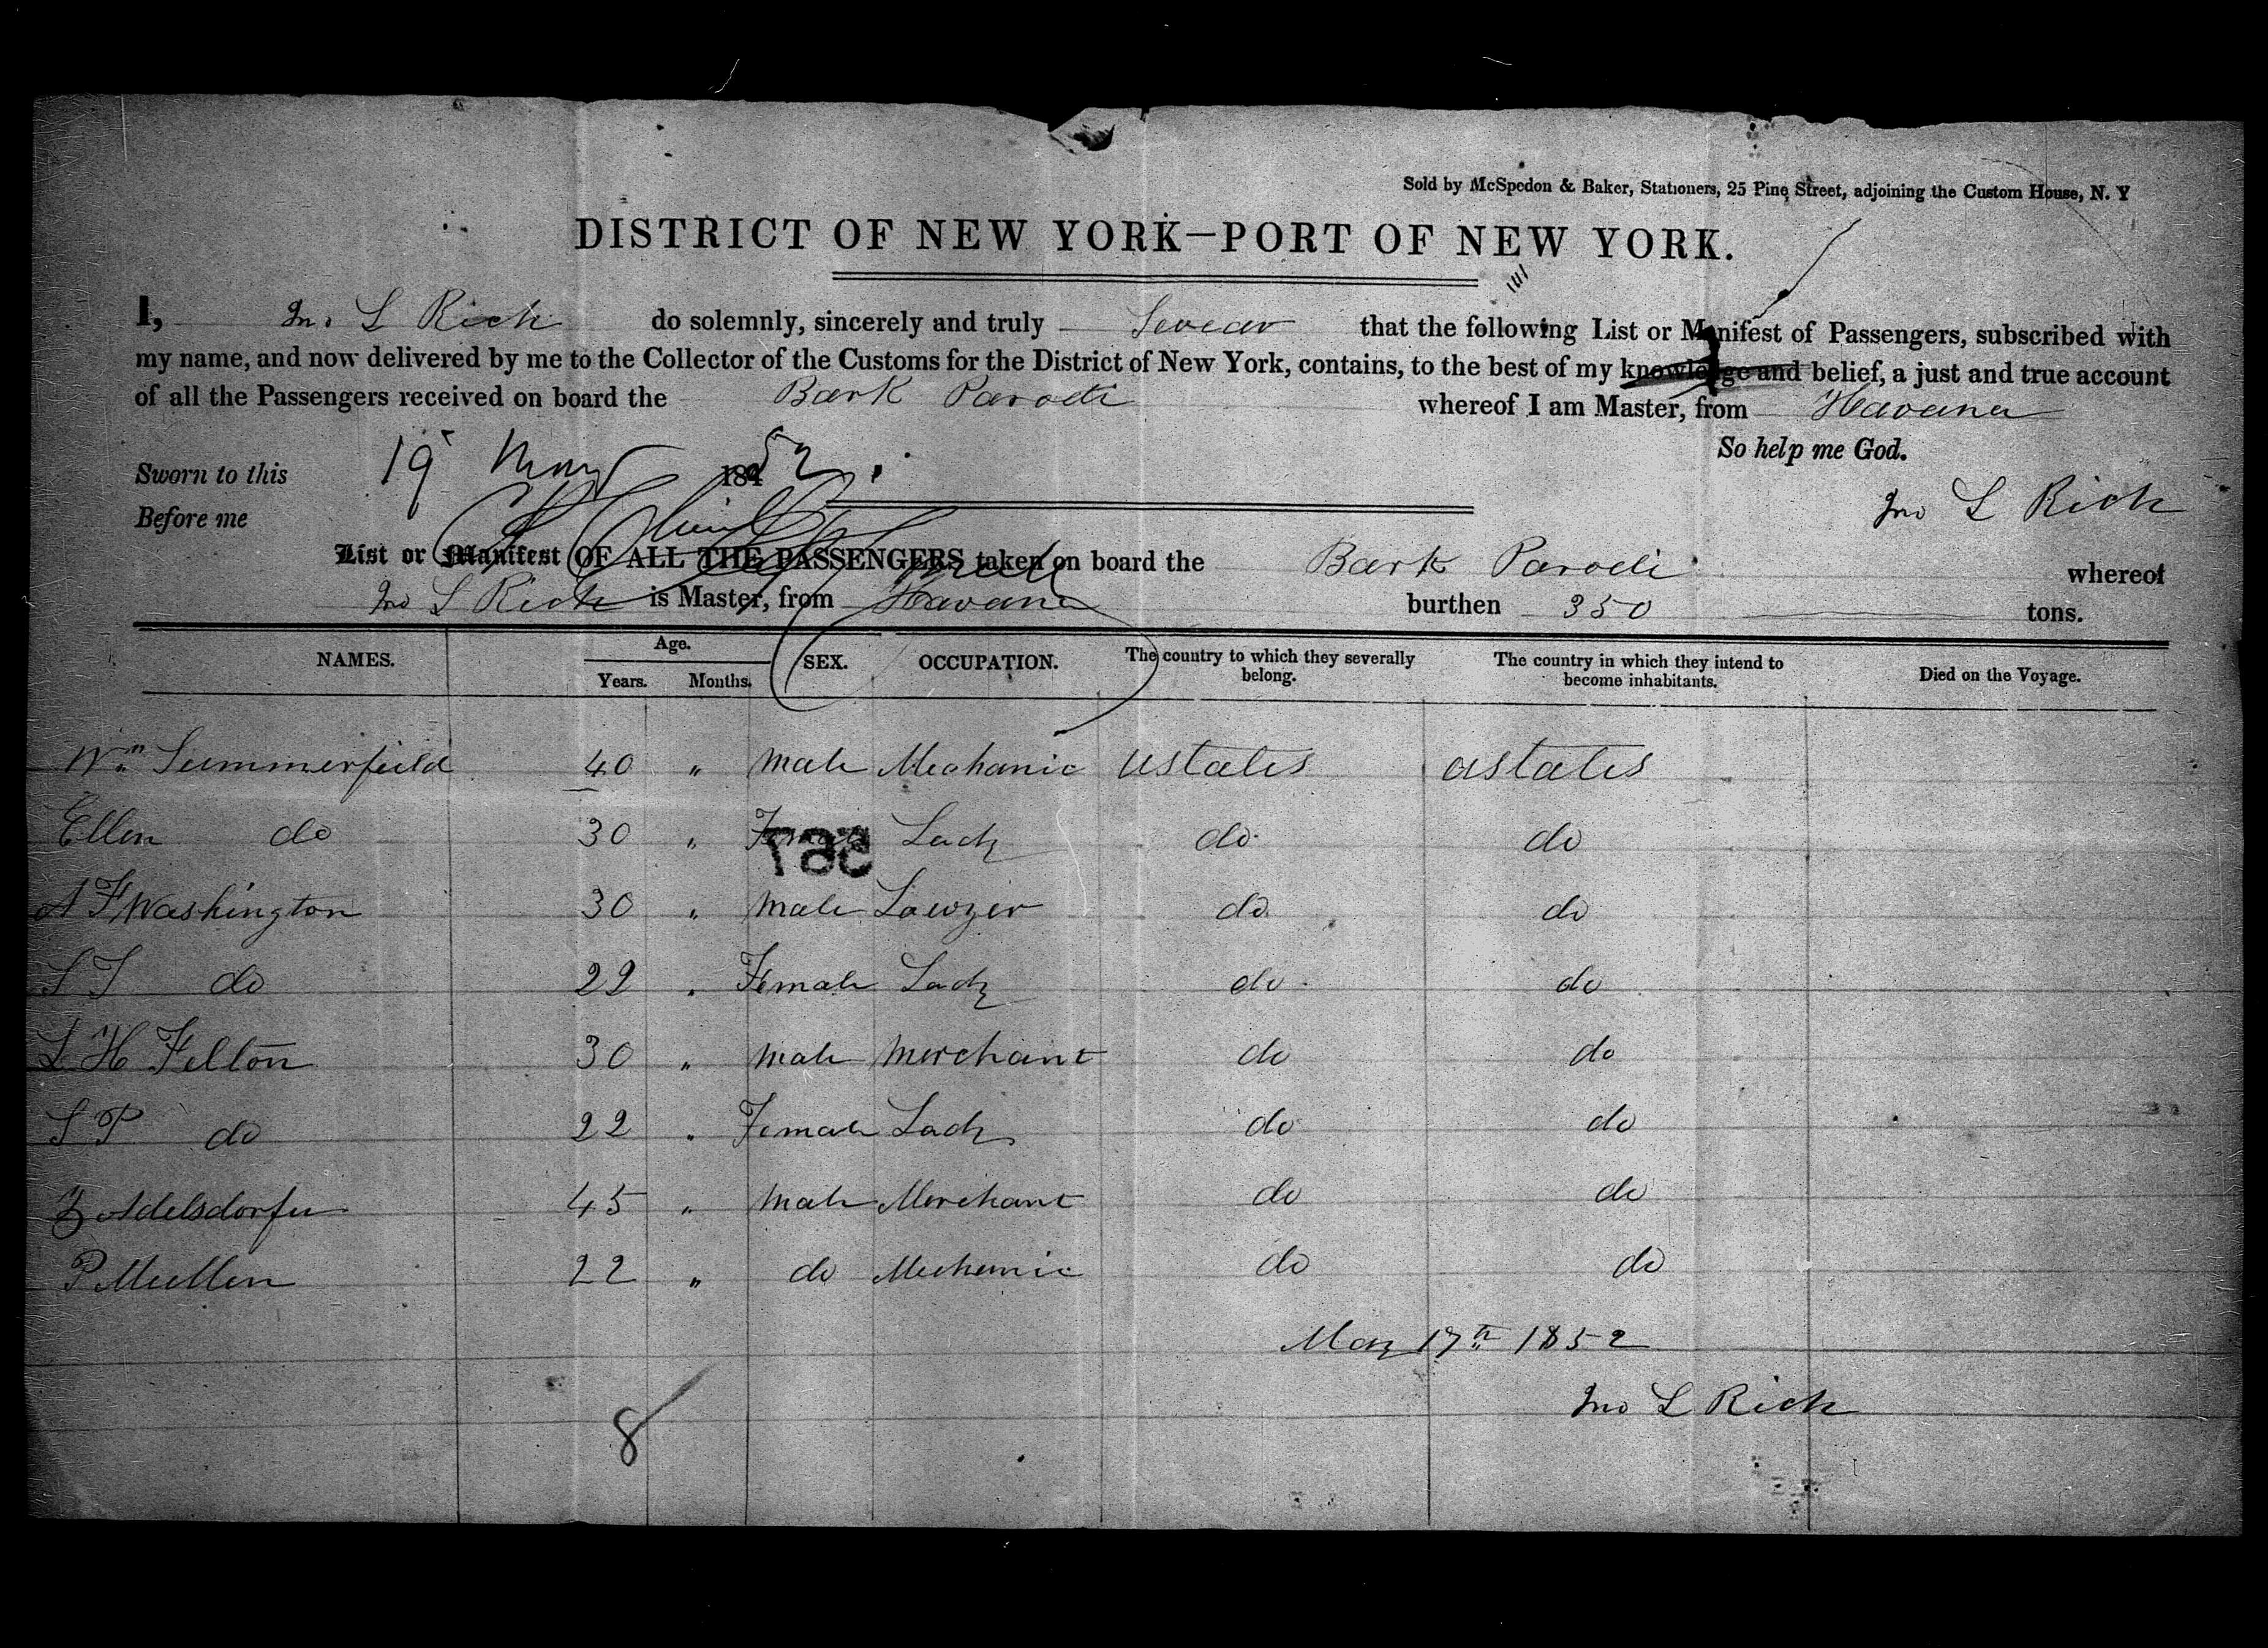 Sold by McSpedon & Baker, Stationers, 25 Pine Street, adjoining the Custom House, N. Y
DISTRICT OF NEW YORK—PORT OF NEW YORK.
I, Jno. L Rich do solemnly, sincerely and truly Swear that the following List or Manifest of Passengers, subscribed with
my name, and now delivered by me to the Collector of the Customs for the District of New York, contains, to the best of my knowledge and belief, a just and true account
of all the Passengers received on board the Bark Parodi whereof I am Master, from Havana
So help me God.
Sworn to this 19 May 1852
Before me
Jno L Rich
List or Manifest OF ALL THE PASSENGERS taken on board the Bark Parodi whereof
Jno L Rich is Master, from Havana burthen 350 tons.
NAMES. Age. Years. Months. SEX. OCCUPATION. The country to which they severally belong. The country in which they intend to become inhabitants. Died on the Voyage.
Wm Summerfield 40 " Male Mechanic Ustates Ustates
Ellen do 30 " Female Lady do do
A F Washington 30 " Male Lawyer do do
S T do 22 " Female Lady do do
L H Felton 30 " Male Merchant do do
S P do 22 " Female Lady do do
Z Adelsdorfer 45 " Male Merchant do do
P Mullen 22 " do Mechanic do do
May 17th 1852
Jno L Rich
8